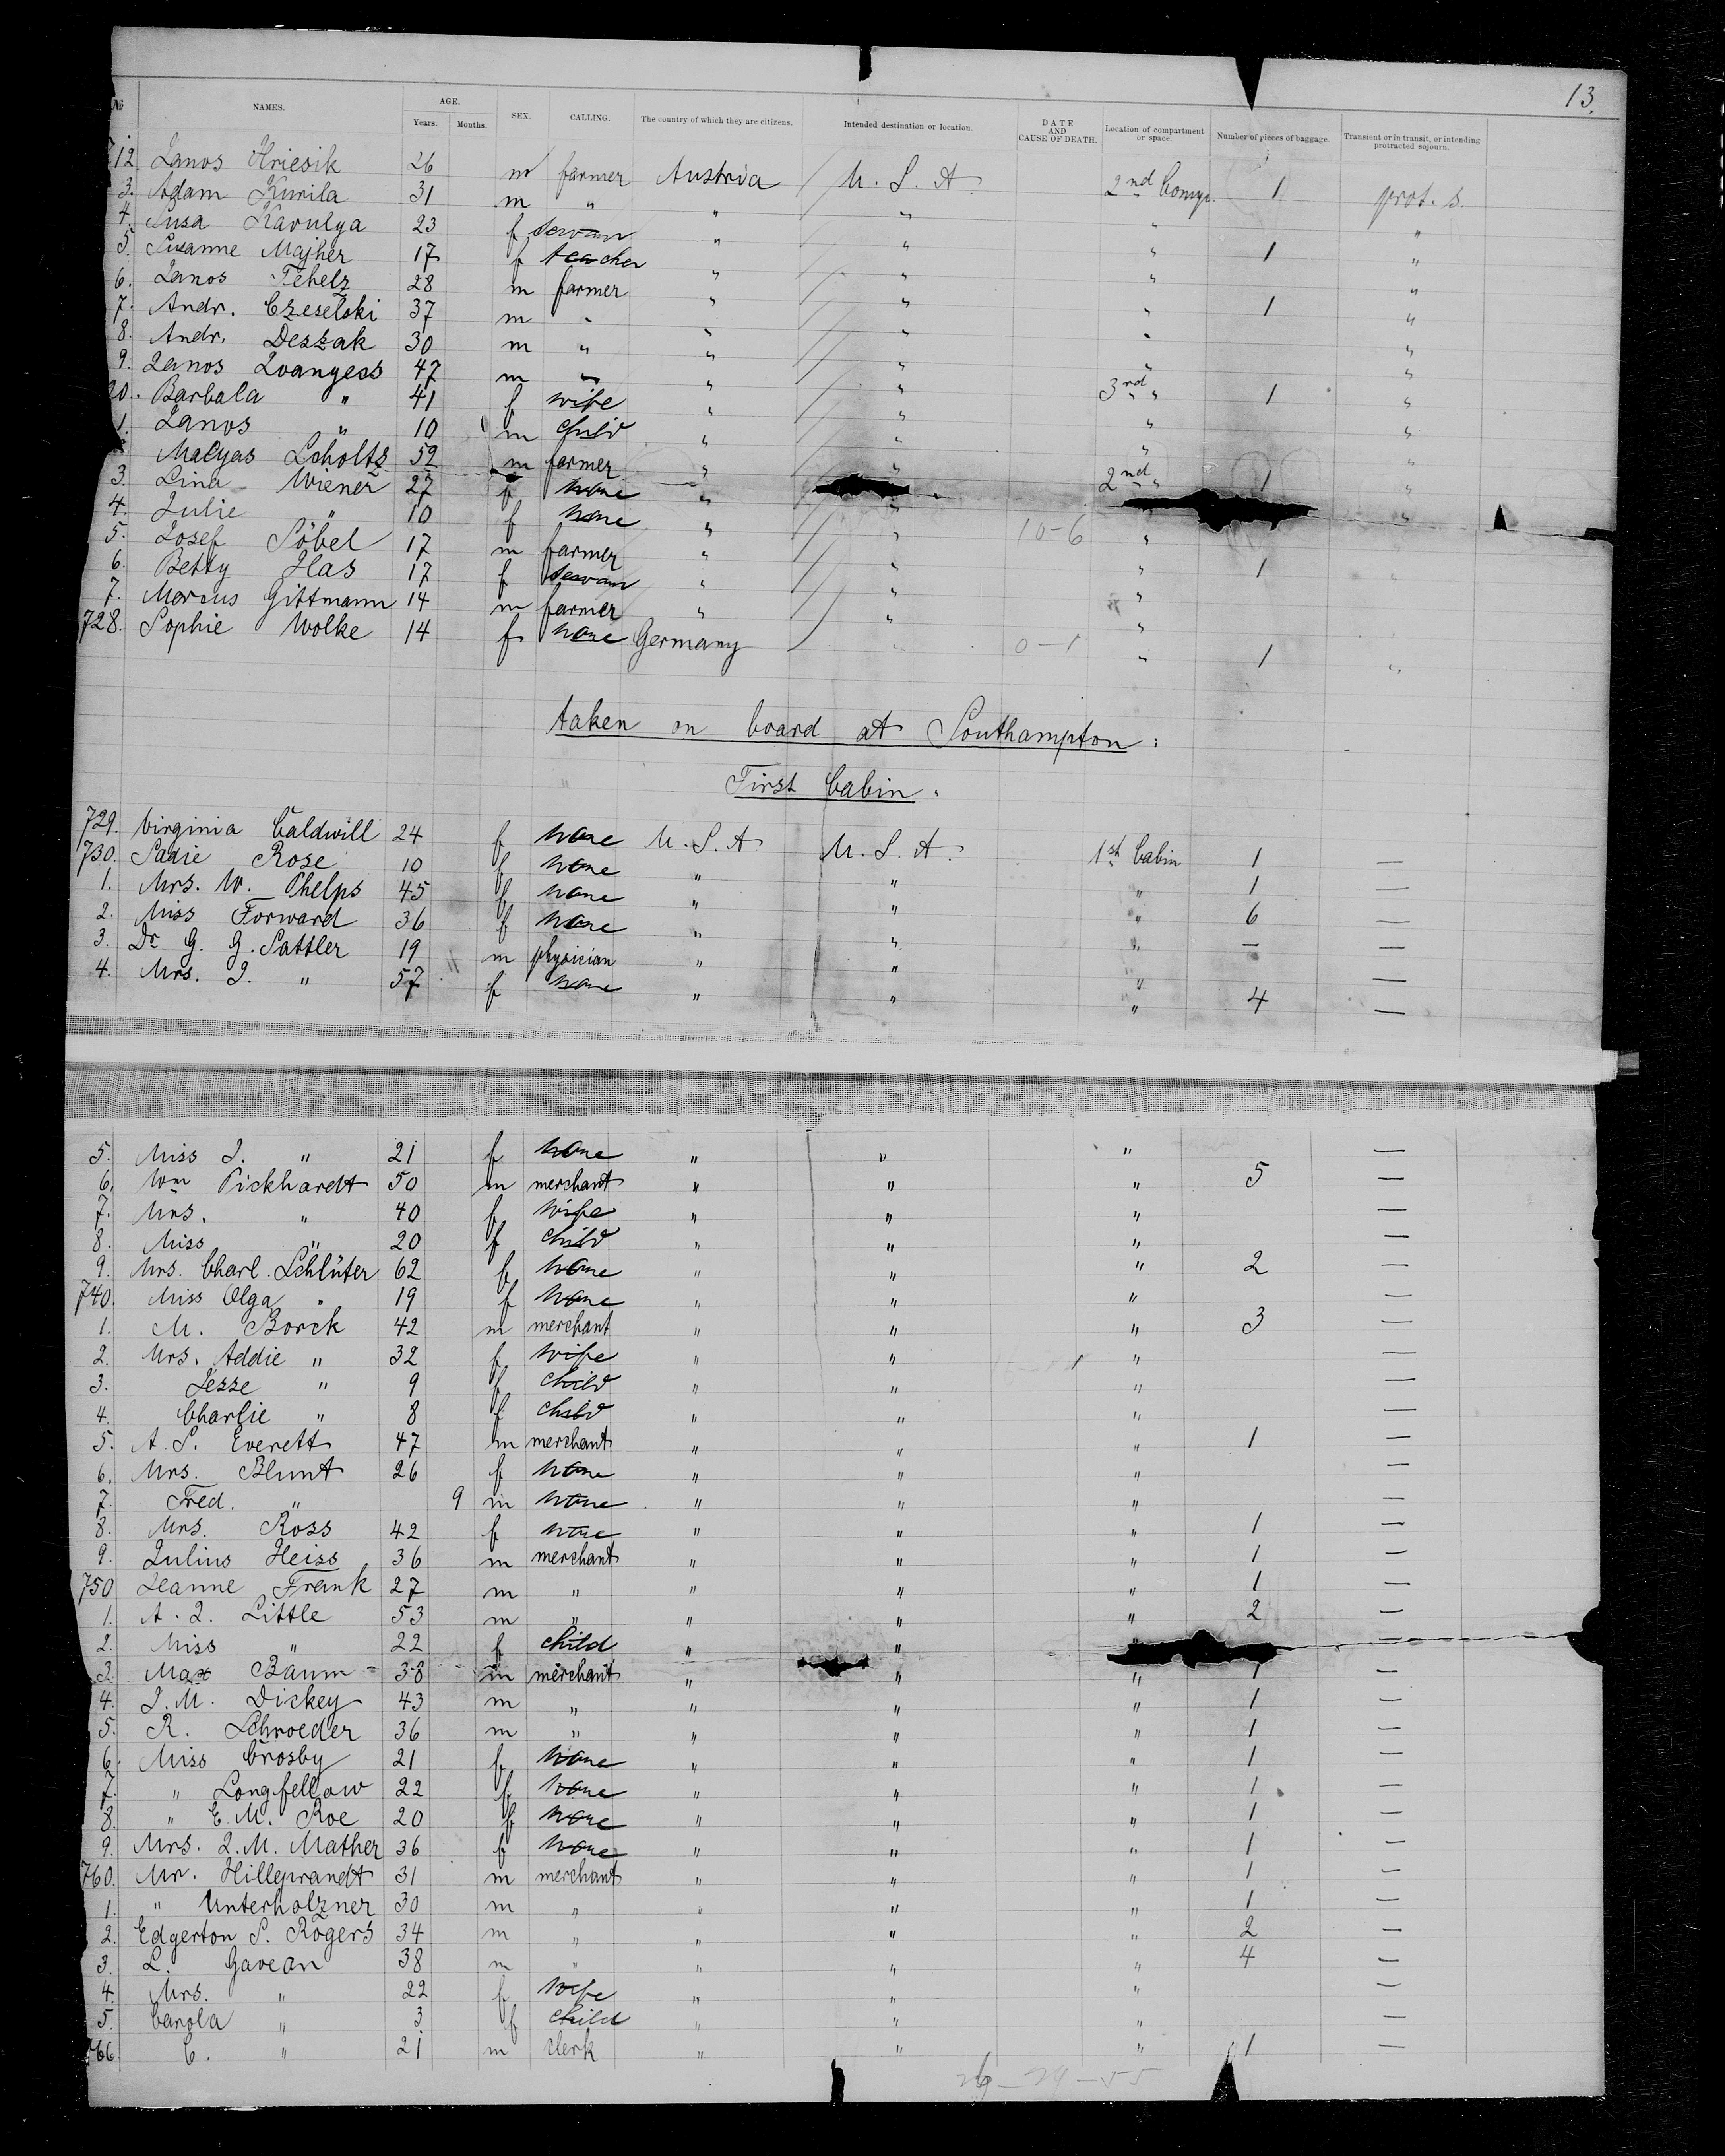 13.
No NAMES. AGE. Years. Months. SEX. CALLING. The country of which they are citizens. Intended destination or location. DATE AND CAUSE OF DEATH. Location of compartment or space. Number of pieces of baggage. Transient or in transit, or intending protracted sojourn.
712 Janos Hriesik 26 m farmer Austria / U. S. A. 2nd Comp. 1 prot. s.
3. Adam Kurila 31 m " " / " " "
4. Susa Karulya 23 f servan " / " " 1 "
5. Susanne Majher 17 f teacher " / " " "
6. Janos Tehelz 28 m farmer " / " " 1 "
7. Andr. Czeselski 37 m " " / " " "
8. Andr. Deszak 30 m " " / " " "
9. Janos Ivanyecs 47 m " " / " 3rd " 1 "
20. Barbala " 41 f wife " / " " "
1. Janos " 10 m child " / " " "
Matyas Scholtz 52 m farmer " / " 2nd " 1 "
3. Lina Wiener 27 f none " / "
4. Julie " 10 f none " / " 10-6 "
5. Josef Söbel 17 m farmer " / " " 1
6. Betty Has 17 f servan " / " "
7. Marcus Gittmann 14 m farmer " / " "
728. Sophie Wolke 14 f none Germany / " 0-1 " 1 "
taken on board at Southampton:
First Cabin.
729. Virginia Caldwill 24 f none U. S. A. U. S. A. 1st Cabin 1 —
730. Sadie Rose 10 f none " " " 1 —
1. Mrs. W. Phelps 45 f none " " " 6 —
2. Miss Forward 36 f none " " " — —
3. Dr G. G. Sattler 19 m physician " " " —
4. Mrs. J. " 57 f none " " " 4 —
5. Miss J. " 21 f none " " " —
6. Wm Pickhardt 50 m merchant " " " 5 —
7. Mrs. " 40 f wife " " " —
8. Miss " 20 f child " " " —
9. Mrs. Charl. Schlüter 62 f none " " " 2 —
740. Miss Olga " 19 f none " " " —
1. M. Borck 42 m merchant " " " 3 —
2. Mrs. Addie " 32 f wife " " " —
3. Jesse " 9 f child " " " —
4. Charlie " 8 f child " " " —
5. A. S. Everett 47 m merchant " " " 1 —
6. Mrs. Blunt 26 f none " " " —
7. Fred. " 9 m none " " " —
8. Mrs. Ross 42 f none " " " 1 —
9. Julius Heiss 36 m merchant " " " 1 —
750 Jeanne Frank 27 m " " " " 1 —
1. A. J. Little 53 m " " " " 2 —
2. Miss " 22 f child " " —
3. Max Baum 38 m merchant " " " 1 —
4. J. M. Dickey 43 m " " " " 1 —
5. R. Schroeder 36 m " " " " 1 —
6. Miss Crosby 21 f none " " " 1 —
7. " Longfellow 22 f none " " " 1 —
8. " E. M. Roe 20 f none " " " 1 —
9. Mrs. J. M. Mather 36 f none " " " 1 —
760. Mr. Hilleprandt 31 m merchant " " " 1 —
1. " Unterholzner 30 m " " " " 1 —
2. Edgerton S. Rogers 34 m " " " " 2 —
3. L. Gavean 38 m " " " " 4 —
4. Mrs. " 22 f wife " " " —
5. Carola " 3 f child " " " —
766 C. " 21 m clerk " " " 1 —